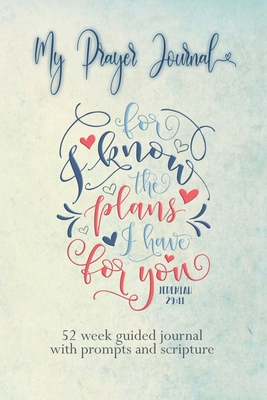 My Prayer Journal
for
I know
the
plans
I have
for you
JEREMIAH
29:11
52 week guided journal
with prompts and scripture